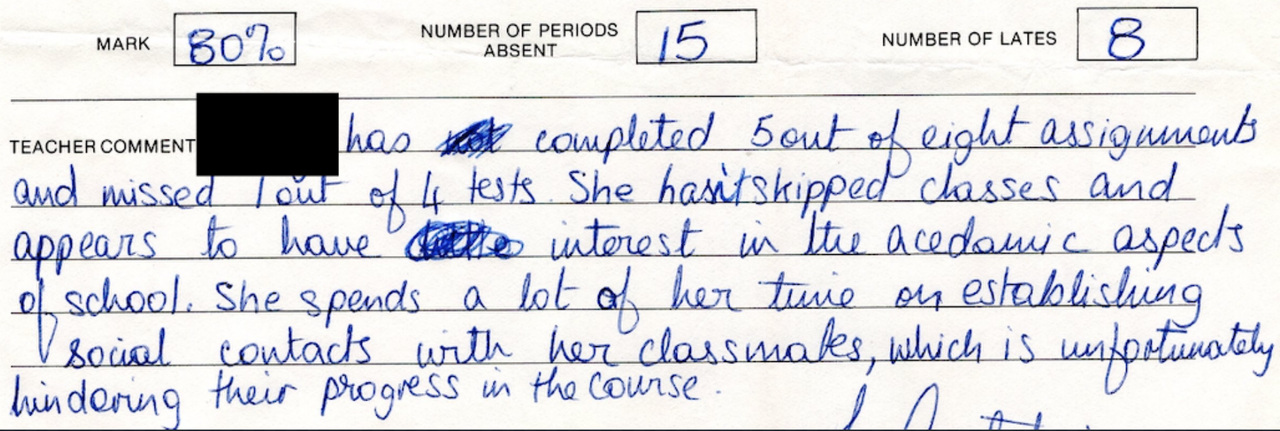 MARK 80% NUMBER OF PERIODS ABSENT 15 NUMBER OF LATES 8
TEACHER COMMENT has completed 5 out of eight assignments
and missed 1 out of 4 tests. She hasn't skipped classes and
appears to have interest in the acedamic aspects
of school. She spends a lot of her time on establishing
social contacts with her classmates, which is unfortunately
hindering their progress in the course.